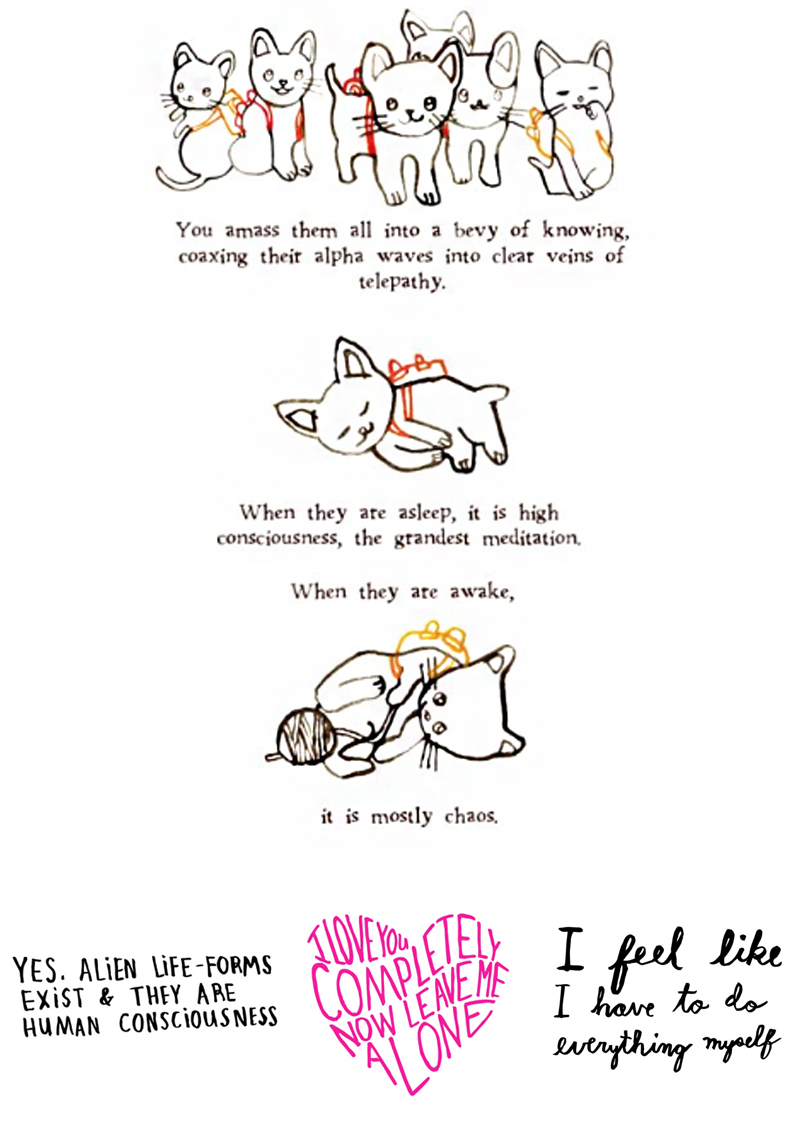 You amass them all into a bevy of knowing,
coaxing their alpha waves into clear veins of
telepathy.
When they are asleep, it is high
consciousness, the grandest meditation.
When they are awake,
it is mostly chaos.
YES. ALiEN LiFE-FORMS
EXiST & THEY ARE
HUMAN CONSCiOUSNESS
I LOVE YOU
COMPLETELY
NOW LEAVE ME
ALONE
I feel like
I have to do
everything myself